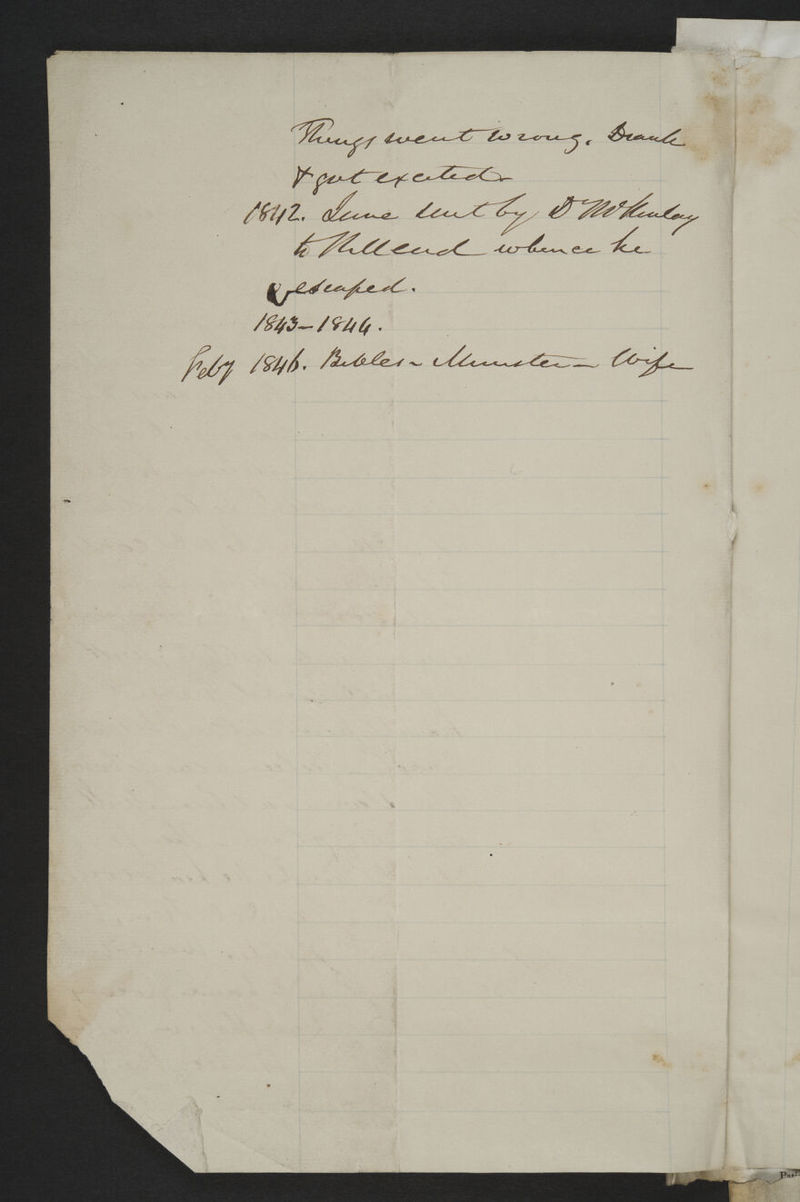 Things went wrong. Drank
& got excited
1842. June sent by Dr McKinlay
to Hillend whence he
escaped.
1843–1844.
Feby 1846. Bibles – Minister – Wife